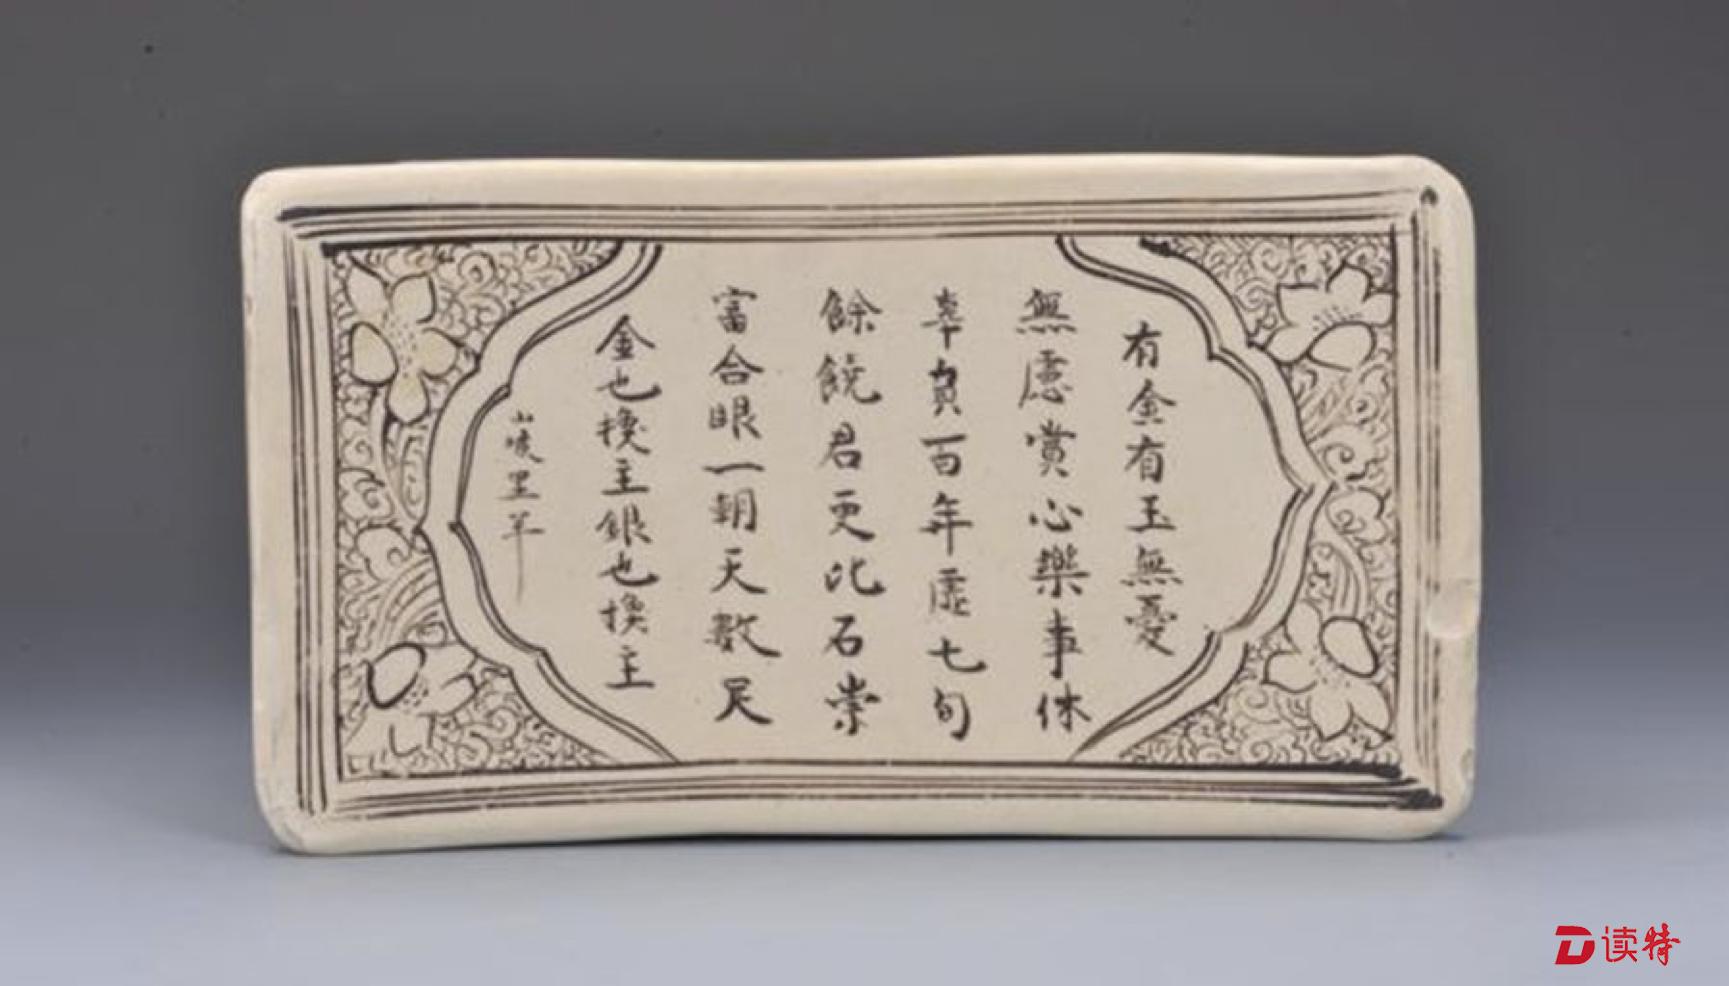 有金有玉無憂
無慮賞心樂事休
辜負百年虛七旬
餘饒君更比石崇
富合眼一朝天數尽
金也換主銀也換主
山坡里羊
读特